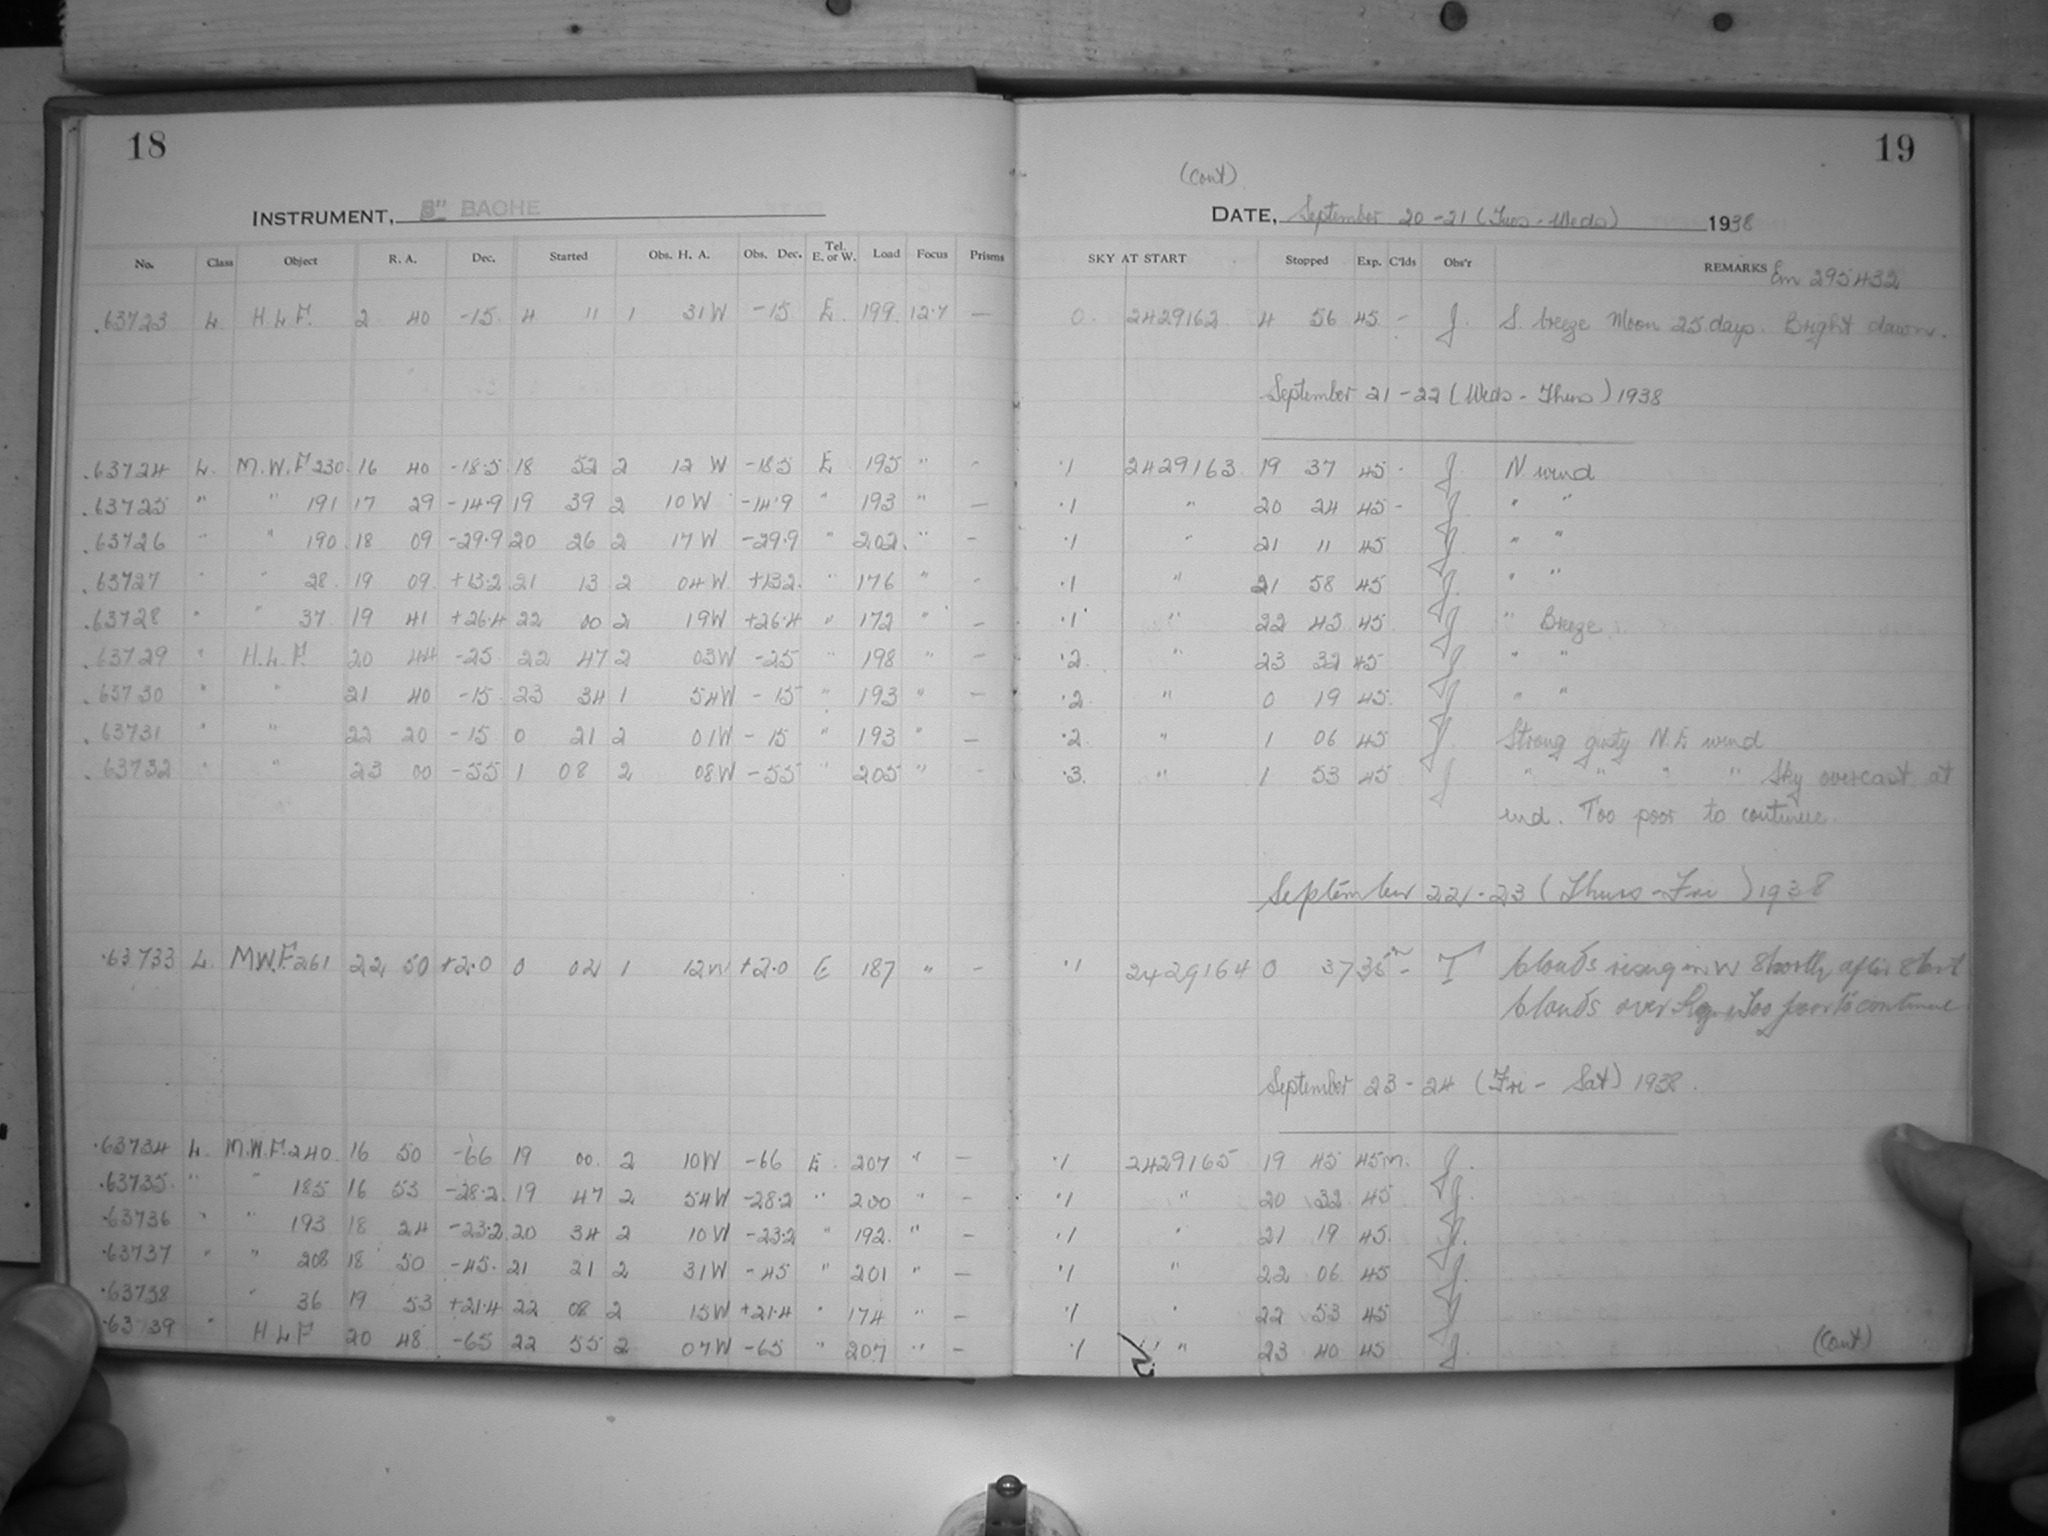 18
INSTRUMENT, 8" BACHE
No. Class Object R. A. Dec. Started Obs. H. A. Obs. Dec. Tel. E. or W. Load Focus Prisms
.63723 L. H L F. 2 40 -15 4 11 1 31W -15 E. 199 12.7 —
.63724 L. M.W.F 230 16 40 -18.5 18 52 2 12 W -18.5 E 195 " -
.63725 " " 191 17 29 -14.9 19 39 2 10 W -14.9 " 193 " —
.63726 " " 190 18 09 -29.9 20 26 2 17 W -29.9 " 202. " -
.63727 " " 28 19 09 +13.2 21 13 2 04 W +13.2 " 176 " -
.63728 " " 37 19 41 +26.4 22 00 2 19W +26.4 " 172 " -
.63729 " H.L.F. 20 44 -25 22 47 2 03W -25 " 198 " -
.63730 " " 21 40 -15 23 34 1 54W -15 " 193 " —
.63731 " " 22 20 -15 0 21 2 01W -15 " 193 " —
.63732 " " 23 00 -55 1 08 2 08W -55 " 205 " -
.63733 L. M.W.F. 261 22 50 +2.0 0 02 1 12W +2.0 E 187 " -
.63734 L. M.W.F. 240 16 50 -66 19 00 2 10W -66 E 207 " —
.63735 " " 185 16 53 -28.2 19 47 2 54W -28.2 " 200 " -
.63736 " " 193 18 24 -23.2 20 34 2 10W -23.2 " 192 " -
.63737 " " 208 18 50 -45 21 21 2 31W -45 " 201 " —
.63738 " 36 19 53 +21.4 22 08 2 15W +21.4 " 174 " —
.63739 " H L F 20 48 -65 22 55 2 07W -65 " 207 " -
19
(cont)
DATE, September 20-21 (Tues-Weds) 1938
SKY AT START Stopped Exp. C'lds Obs'r REMARKS Em 295432
0. 2429162 4 56 45 - J. S. breeze Moon 25 days. Bright dawn.
September 21-22 (Weds - Thurs) 1938
.1 2429163 19 37 45 - J N wind
.1 " 20 24 45 - J " "
.1 " 21 11 45 J " "
.1 " 21 58 45 J " "
.1 " 22 45 45 J " Breeze
.2 " 23 32 45 J " "
.2 " 0 19 45 J " "
.2 " 1 06 45 J Strong gusty N.E wind
.3 " 1 53 45 J " " " " Sky overcast at
end. Too poor to continue.
September 22-23 (Thurs-Fri) 1938
.1 2429164 0 37 35m - T Clouds rising in W shortly after start
Clouds over Too poor to continue
September 23-24 (Fri - Sat) 1938.
.1 2429165 19 45 45m. J.
.1 " 20 32 45 J.
.1 " 21 19 45 J.
.1 " 22 06 45 J.
.1 " 22 53 45 J
.1 " 23 40 45 J.
(Cont)